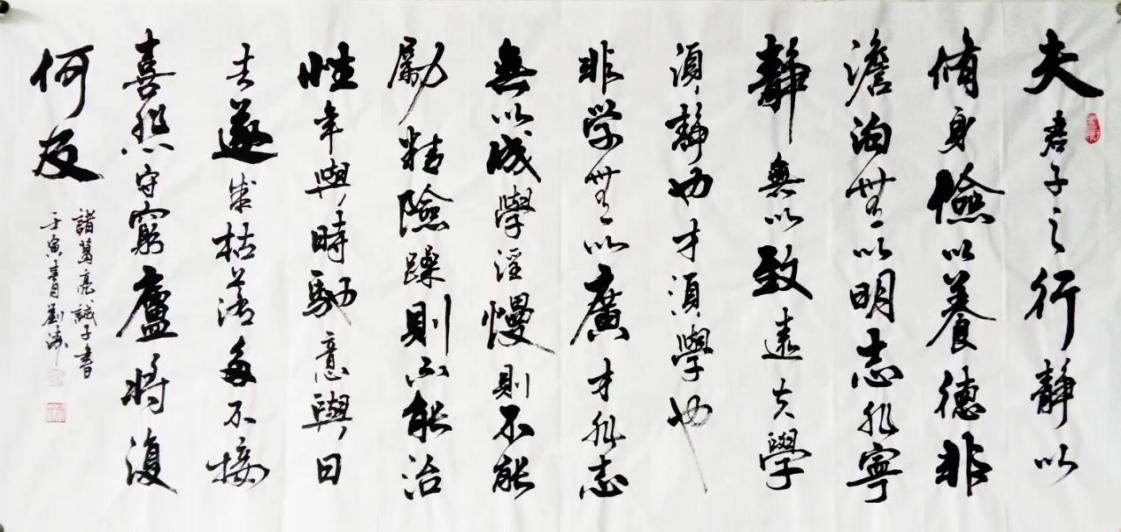 夫君子之行靜以
脩身儉以養德非
澹泊無以明志非寧
靜無以致遠夫學
須靜也才須學也
非学無以廣才非志
無以成學淫慢則不能
勵精險躁則不能治
性年與時馳意與日
去遂成枯落多不接
喜悲守窮廬將復
何及
諸葛亮誡子書
壬寅春月劉